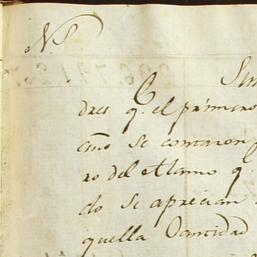 N.
Sin
dres q. el primero
cino se contaron
ro del Alamo q.
do se aprecian
quella Cantidad